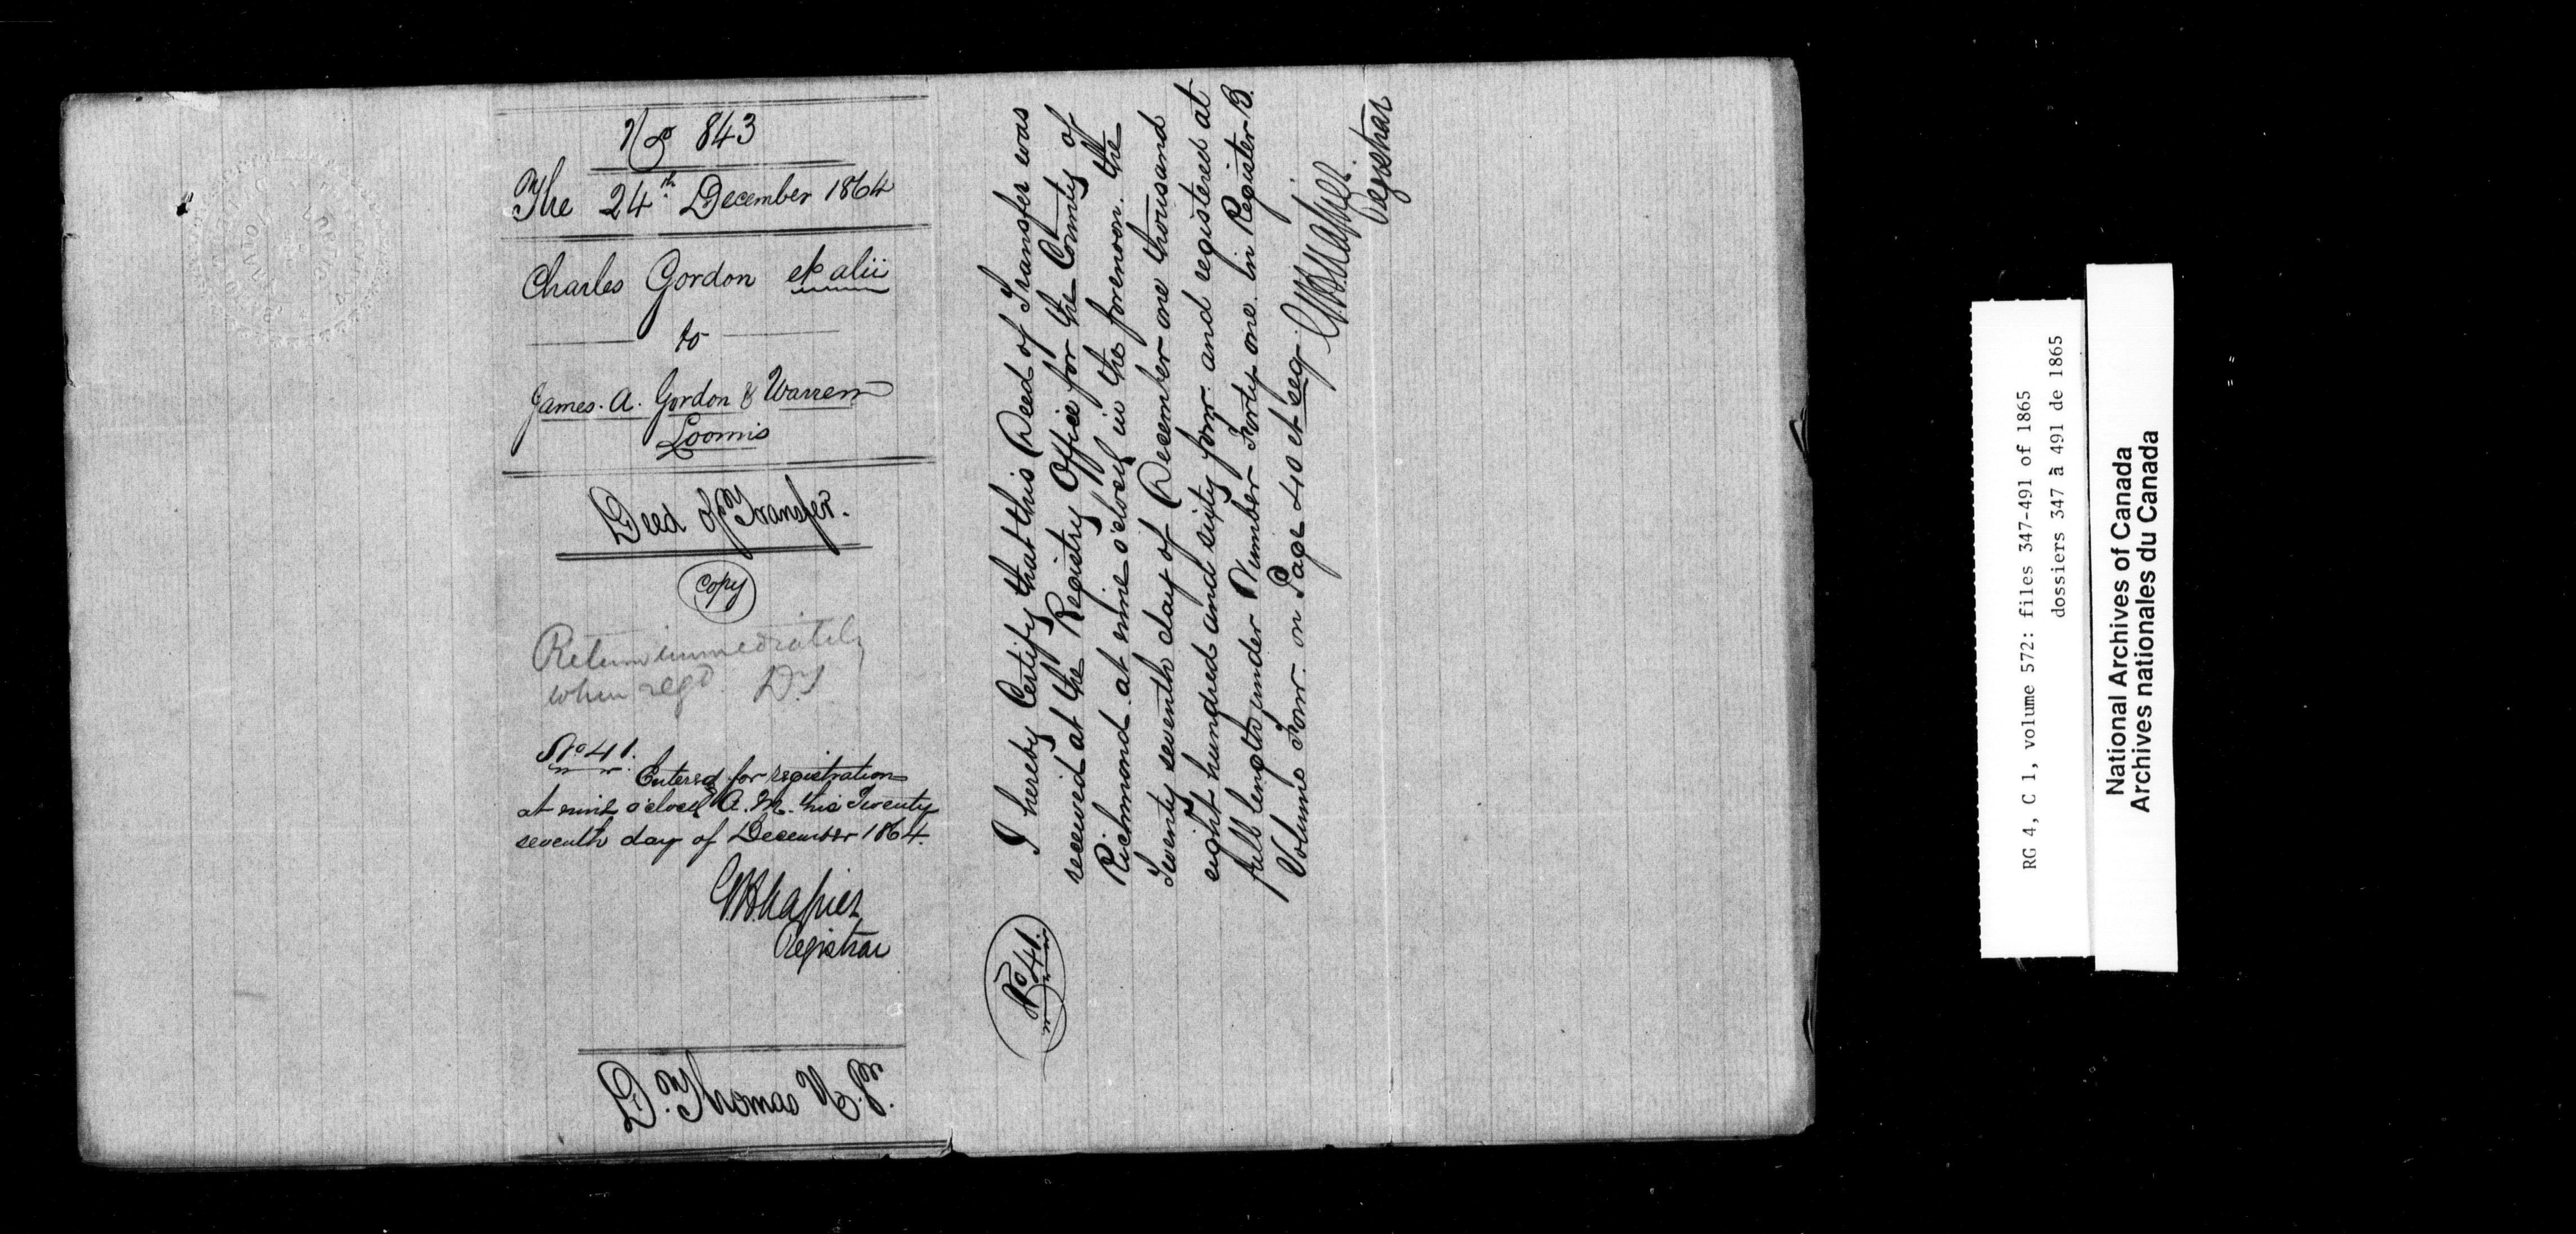 No 843
The 24th December 1864
Charles Gordon et alii
to
James. A. Gordon & Warren
Loomis
Deed of Transfer.
Copy
Return immediately
when regd. D.T
No 41.
Entered for registration
at nine o'clock A.M. this Twenty
seventh day of December 1864.
Registrar
D. Thomas N.P.
No 41.
I hereby Certify that this Deed of Transfer was
received at the Registry Office for the County of
Richmond at nine o'clock in the forenoon. the
Twenty seventh day of December one thousand
eight hundred and sixty four. and registered at
full length under Number Forty one. in Register B.
Volume Four. on Page 410 et seq.
Registrar
RG 4, C 1, volume 572: files 347-491 of 1865
dossiers 347 à 491 de 1865
National Archives of Canada
Archives nationales du Canada